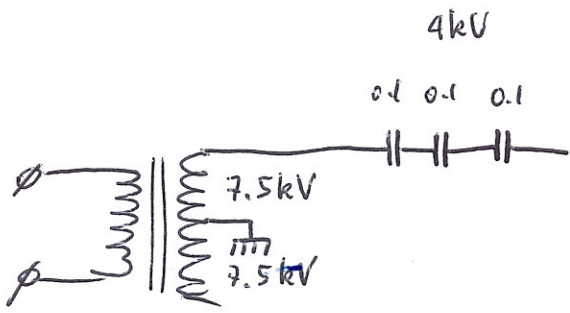 4kV
0.1 0.1 0.1
7.5kV
7.5kV